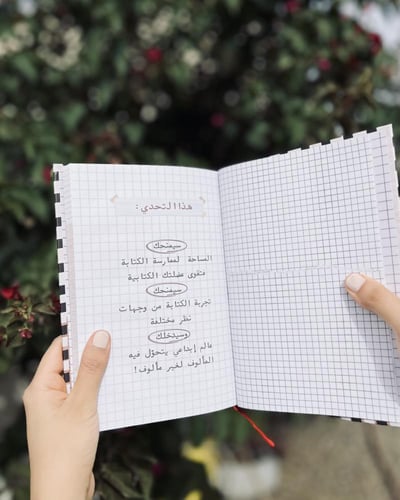 هذا التحدي:
سيمنحك
المساحة لممارسة الكتابة
فتقوى عضلتك الكتابية
سيمنحك
تجربة الكتابة من وجهات
نظر مختلفة
وسيدخلك
عالم إبداعي يتحوّل فيه
المألوف لغير مألوف!